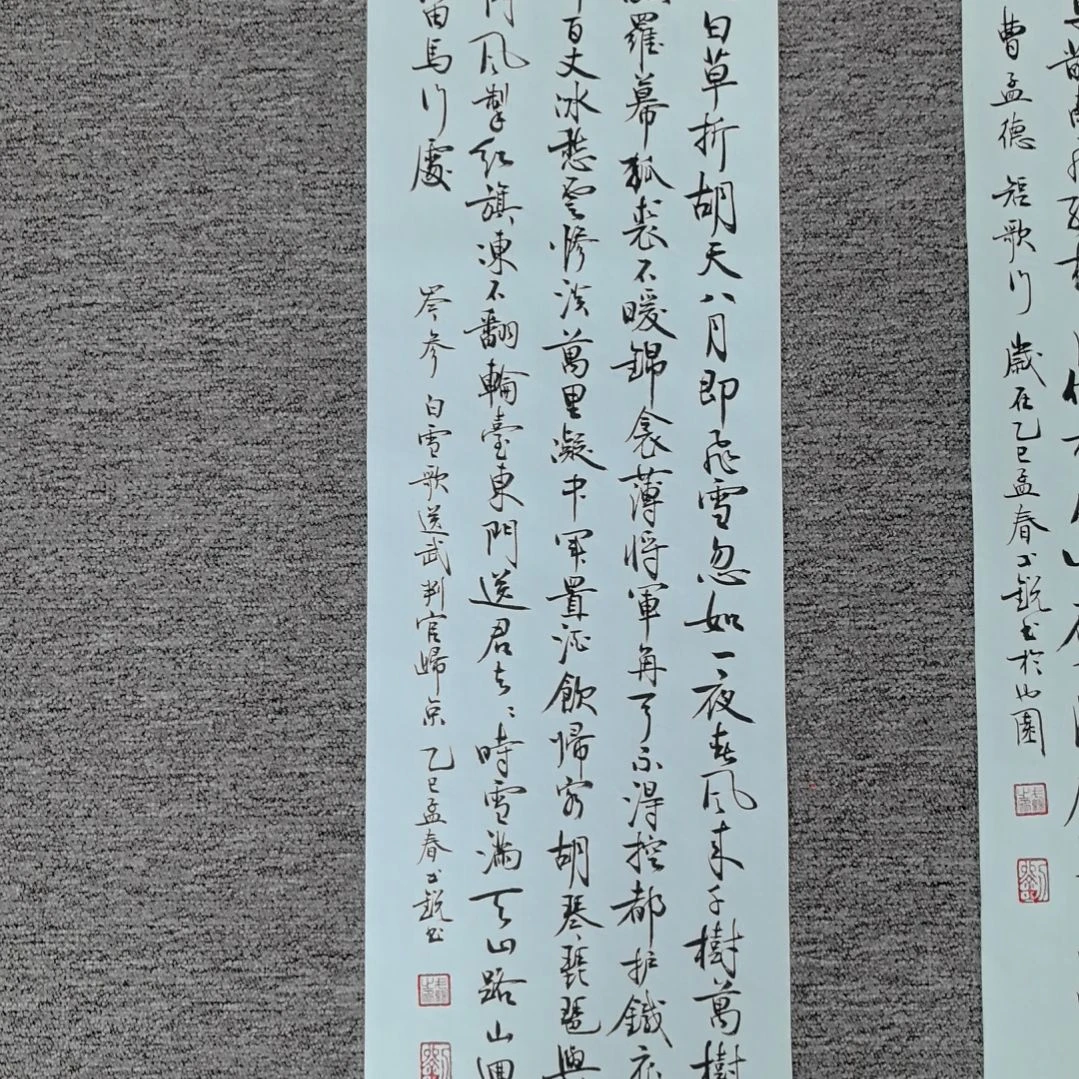 曹孟德 短歌行 歲在乙巳孟春 銳书於園
白草折胡天八月即飛雪忽如一夜春風来千樹萬樹
羅幕狐裘不暖錦衾薄將軍角弓不得控都护鐵衣
百丈冰愁雲慘淡萬里凝中軍置酒飲歸客胡琴琵琶與
風掣红旗凍不翻輪臺東門送君去々時雪滿天山路山迴
馬行處 岑參 白雪歌送武判官歸京 乙巳孟春 銳书